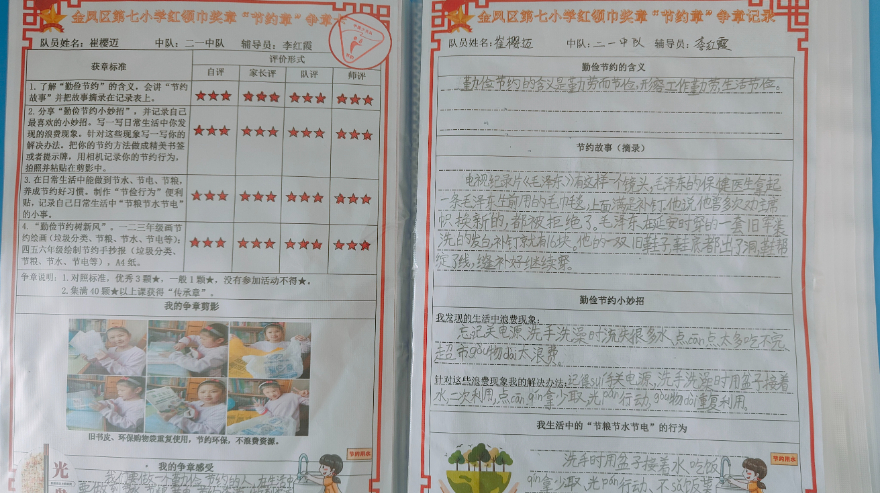 金凤区第七小学红领巾奖章“节约章”争章
队员姓名：崔樱迈 中队：二一中队 辅导员：李红霞
获章标准
评价形式
自评 家长评 队评 师评
1.了解“勤俭节约”的含义，会讲“节约
故事”并把故事摘录在记录表上。
★★★ ★★★ ★★★ ★★★
2.分享“勤俭节约小妙招”，并记录自己
最喜欢的小妙招。写一写日常生活中你发
现的浪费现象，针对这些现象写一写你的
解决办法。把你的节约方法做成精美书签
或者提示牌。用相机记录你的节约行为，
拍照并粘贴在剪影中。
★★★ ★★★ ★★★ ★★★
3.在日常生活中能做到节水、节电、节粮，
养成节约好习惯。制作“节俭行为”便利
贴，记录自己日常生活中“节粮节水节电”
的小事。
★★★ ★★★ ★★★ ★★★
4.“勤俭节约树新风”。一二三年级画节
约绘画（垃圾分类、节粮、节水、节电等）；
四五六年级绘制节约手抄报（垃圾分类、
节粮、节水、节电等）。A4纸。
★★★ ★★★ ★★★ ★★★
争章说明：1.对照标准，优秀3颗★，一般1颗★，没有参加活动不得★。
2.集满40颗★以上课获得“传承章”。
我的争章剪影
旧书皮、环保购物袋重复使用，节约环保，不浪费资源。
我的争章感受
节约用水
光
金凤区第七小学红领巾奖章“节约章”争章记录
队员姓名：崔樱迈 中队：二一中队 辅导员：李红霞
勤俭节约的含义
勤俭节约的含义是勤劳而节俭。形容工作勤劳，生活节俭。
节约故事（摘录）
电视纪录片《毛泽东》有这样一个镜头，毛泽东的保健医生拿起
一条毛泽东生前用的毛巾毯，上面满是补钉。他说他曾多次劝主席
换新的，都被拒绝了。毛泽东在延安时穿的一套旧军装
洗的发白补钉就有16块。他的一双旧鞋子鞋底都出了洞，鞋帮
绽了线，缝补好继续穿。
勤俭节约小妙招
我发现的生活中浪费现象：
忘记关电源，洗手洗澡时流失很多水，点cān点太多吃不完，
超市gòu物dài太浪费。
针对这些浪费现象我的解决办法：记得suí手关电源，洗手洗澡时用盆子接着
水，二次利用，点cān qín拿少取，光pán行动，gòu物dài重复利用。
我生活中的“节粮节水节电”的行为
洗手时用盆子接着水，吃饭
qín拿少取，光pán行动，不
节约用水